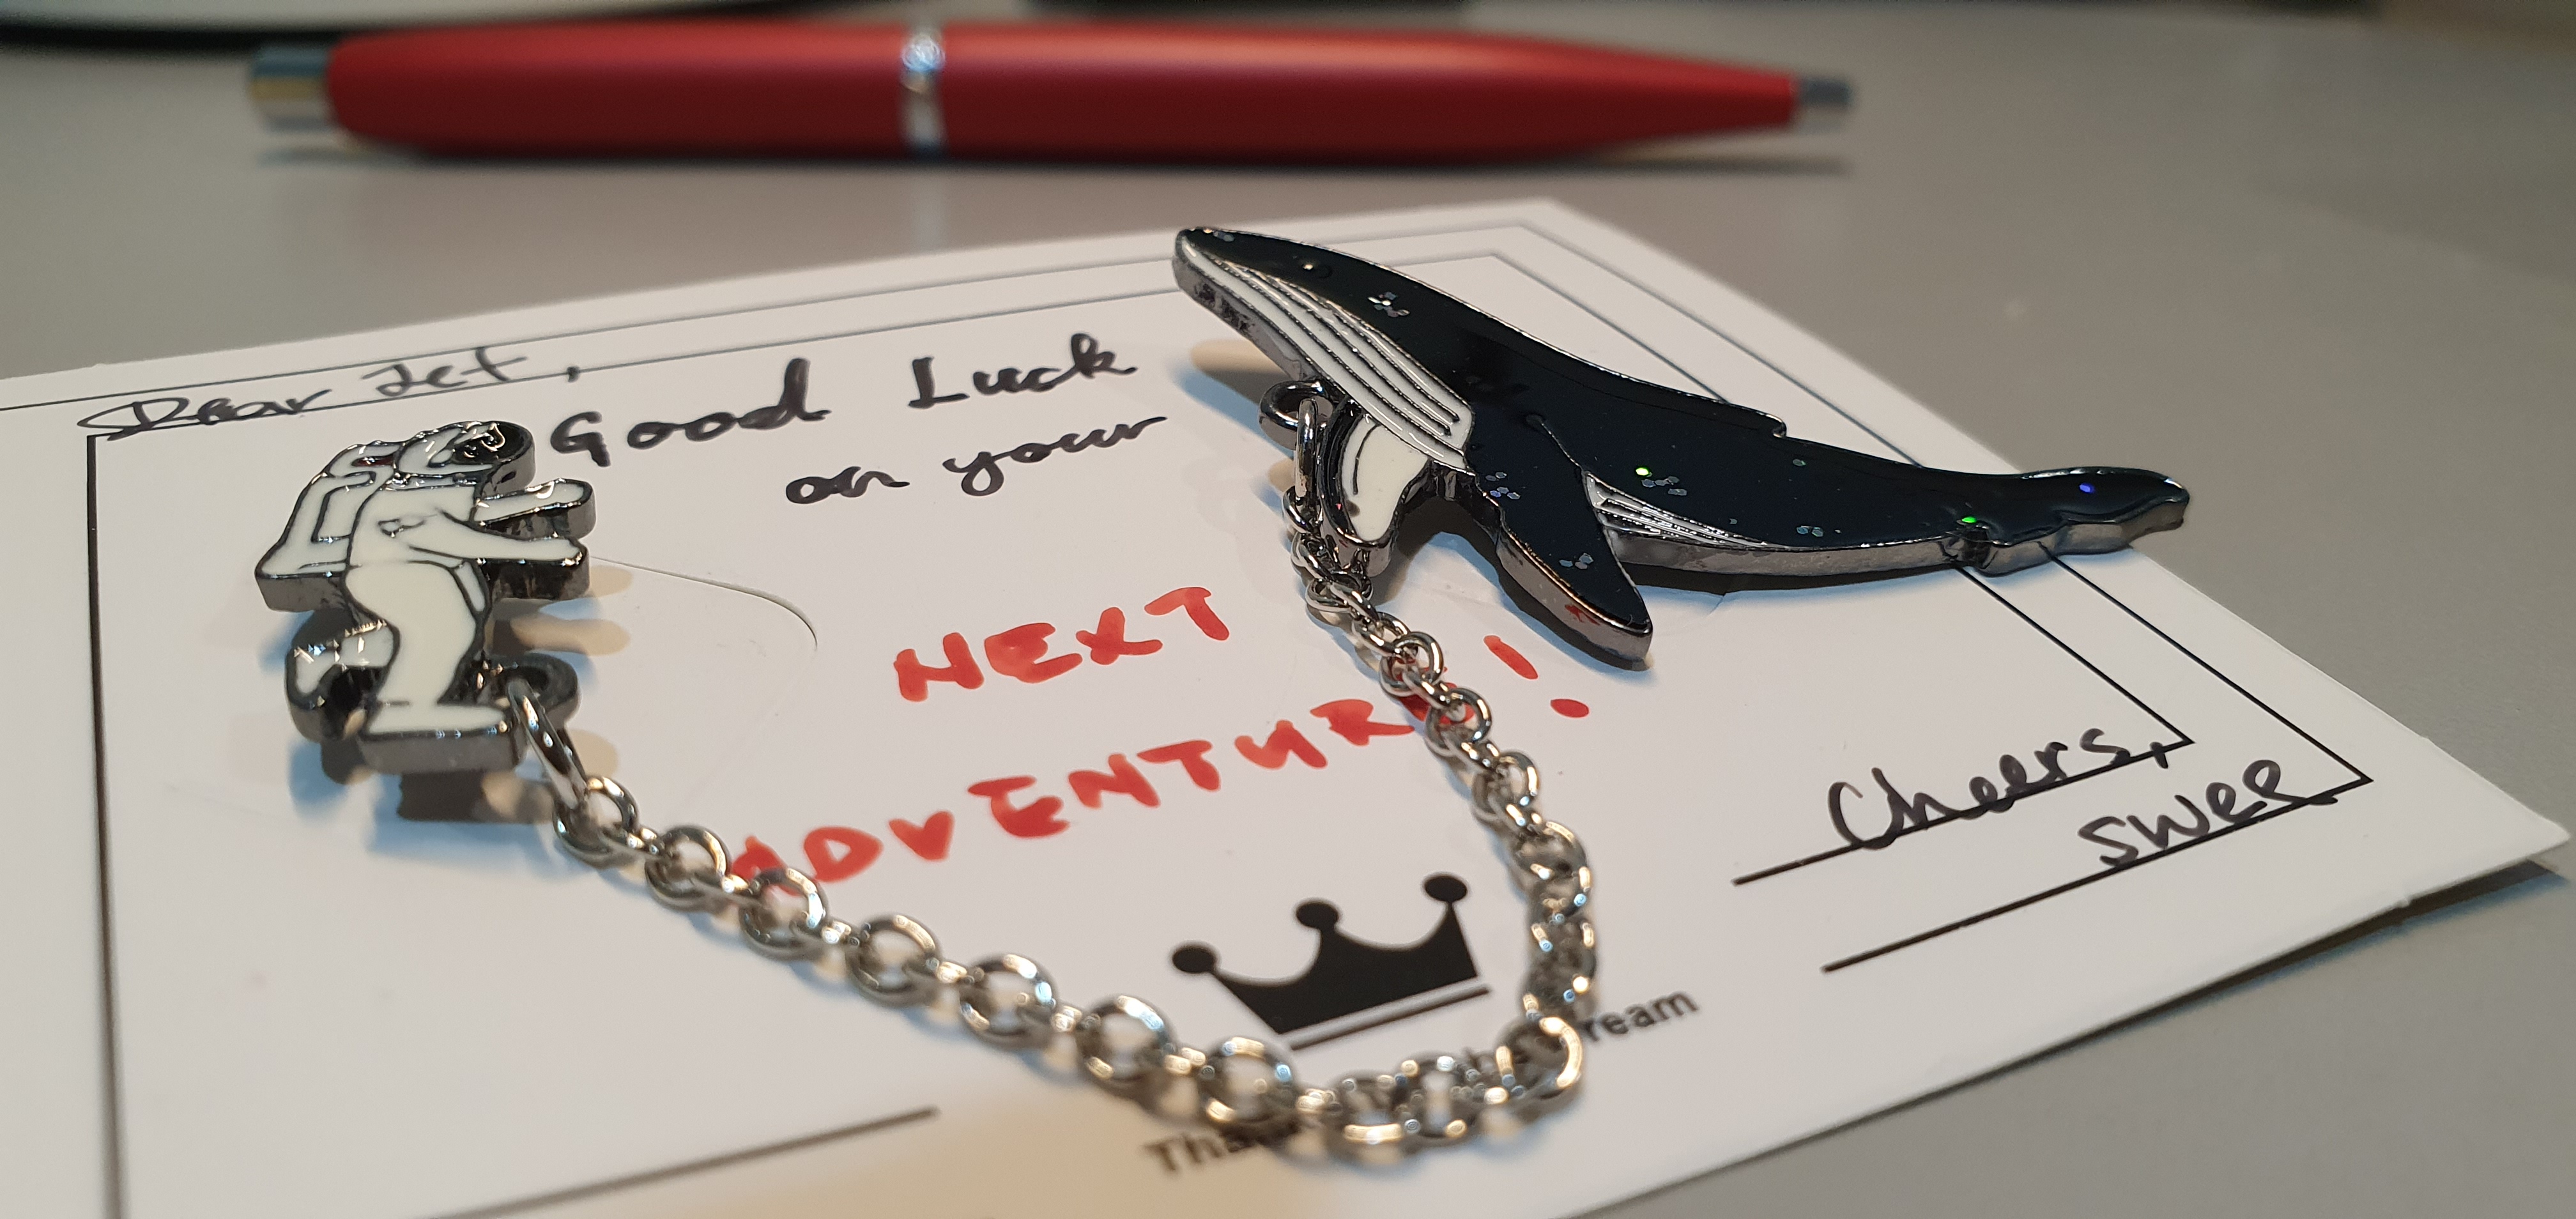 Dear Jet,
Good Luck
on your
NEXT
ADVENTURE!
Cheers,
Swee